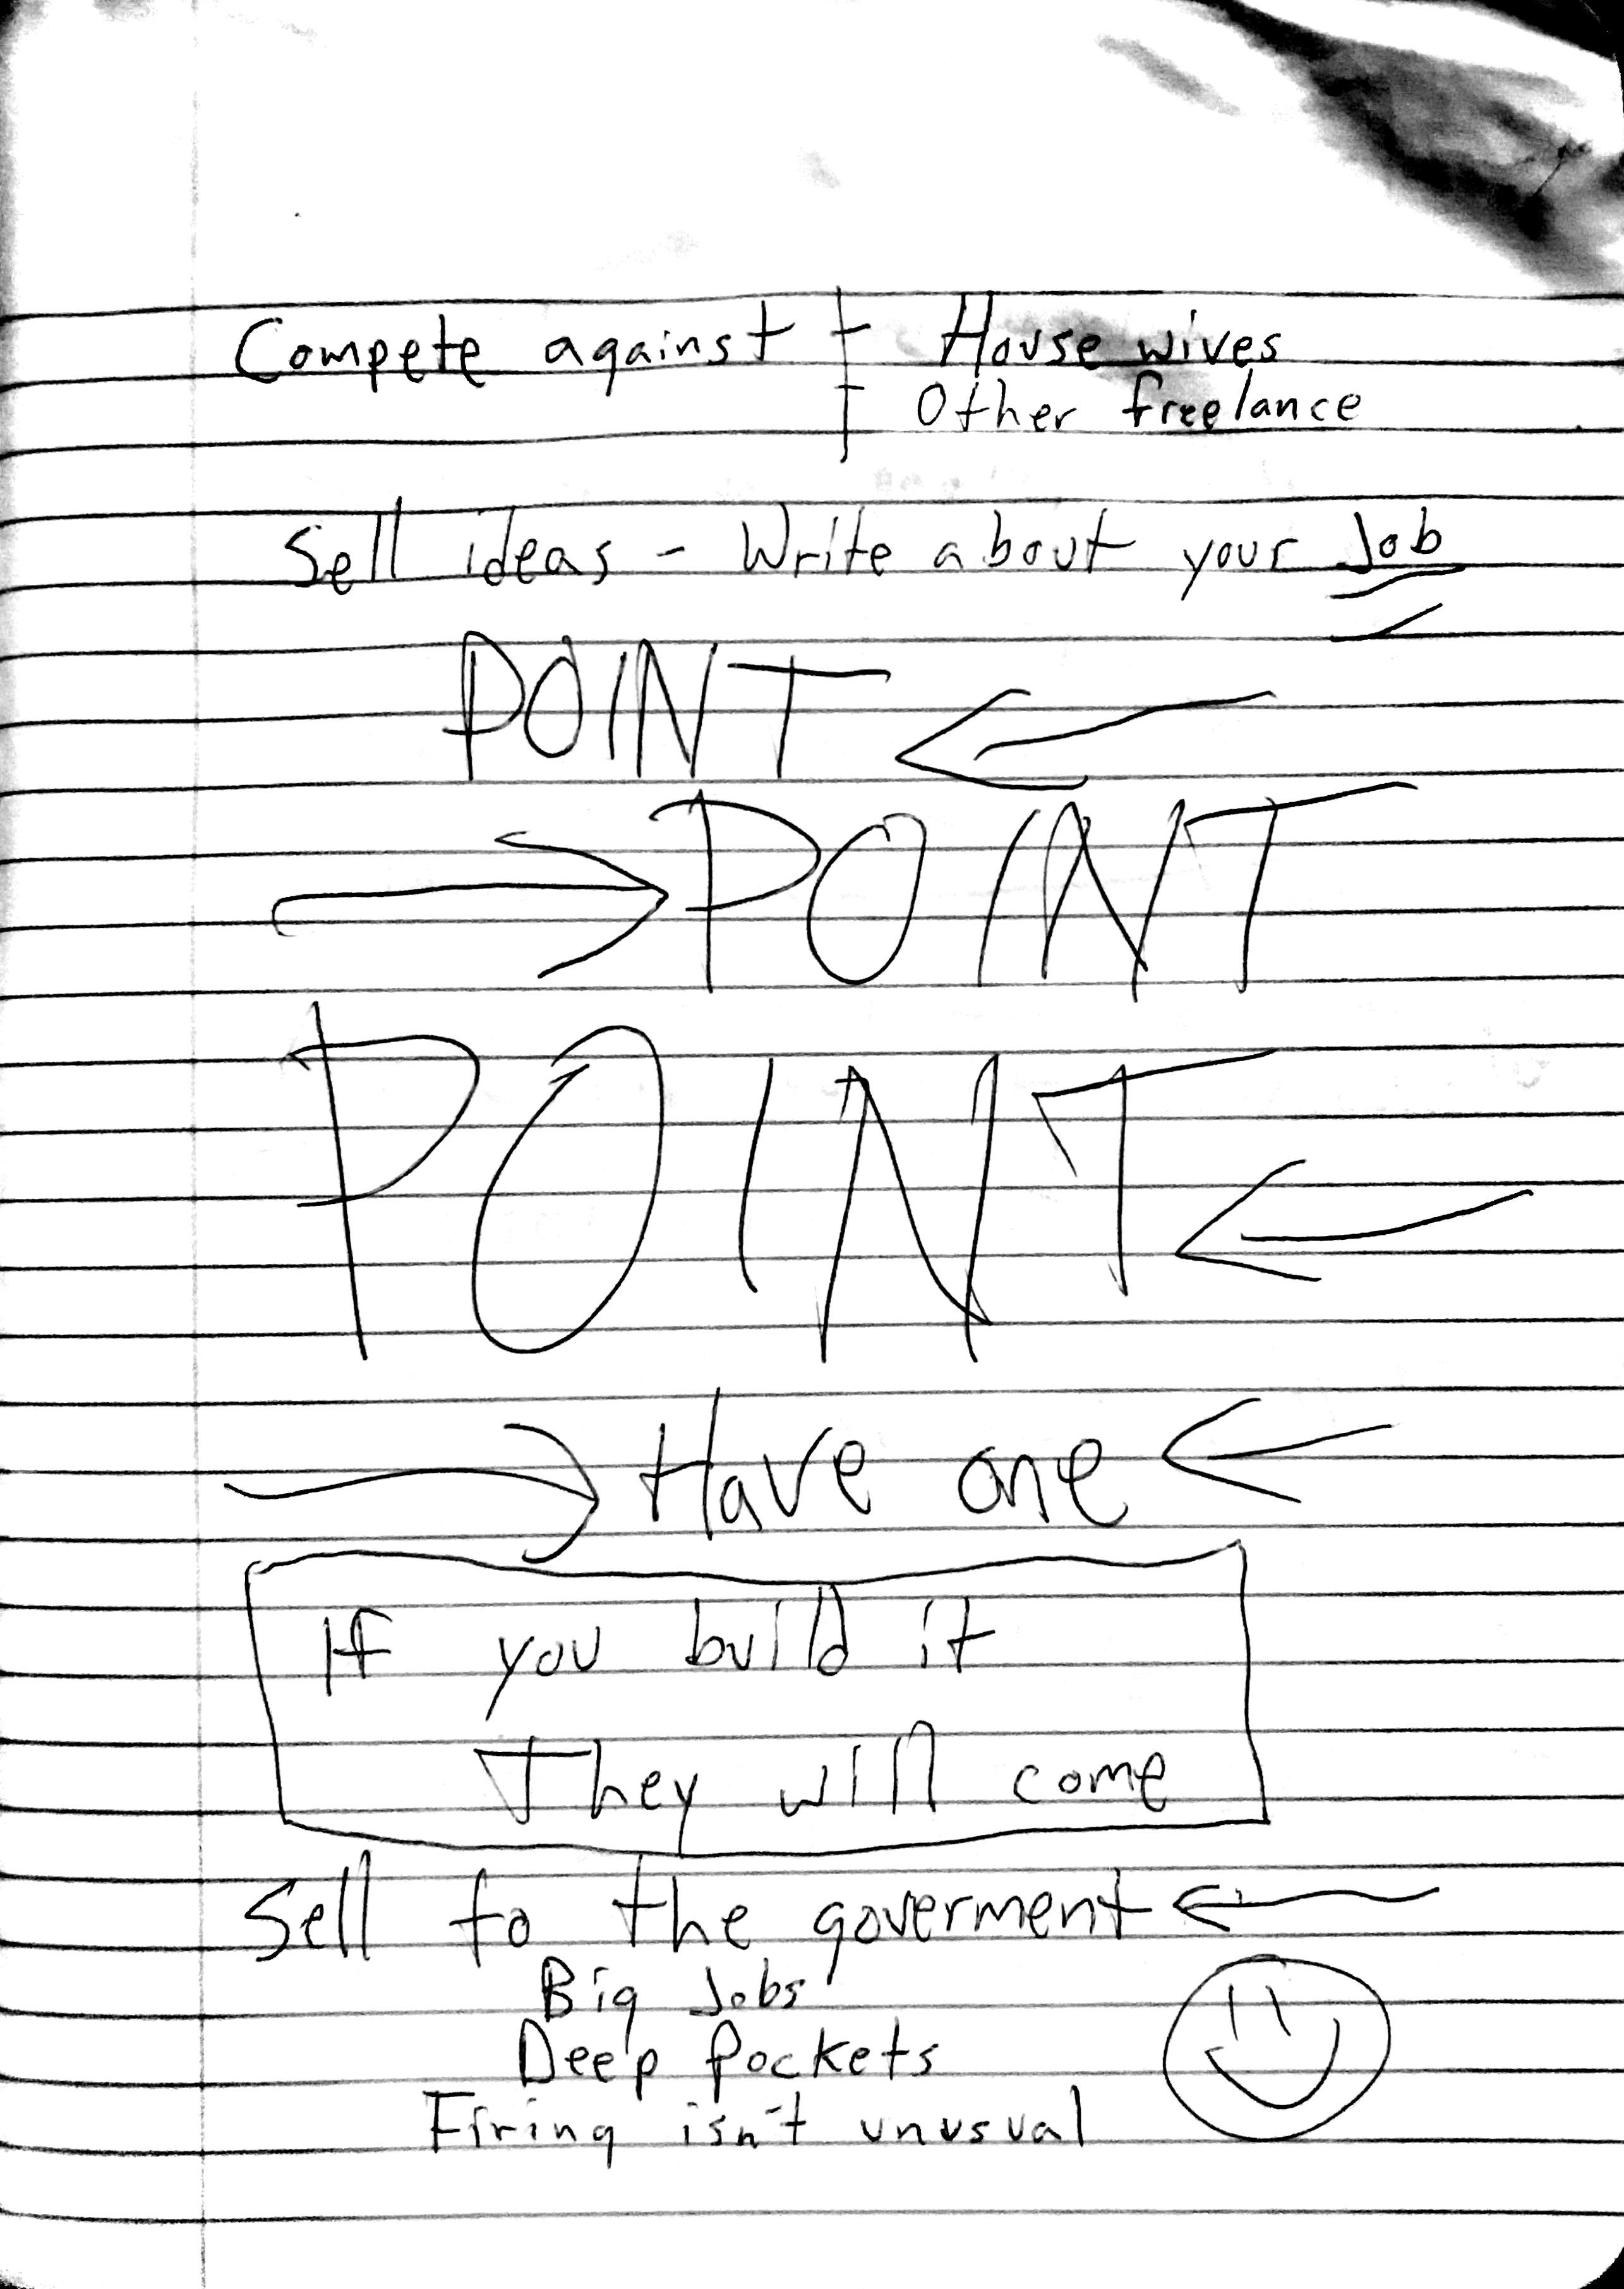 Compete against House wives
Other freelance
Sell ideas - Write about your Job
POINT
POINT
POINT
Have one
If you build it
They will come
Sell to the goverment
Big Jobs
Deep Pockets
Firing isn't unusual